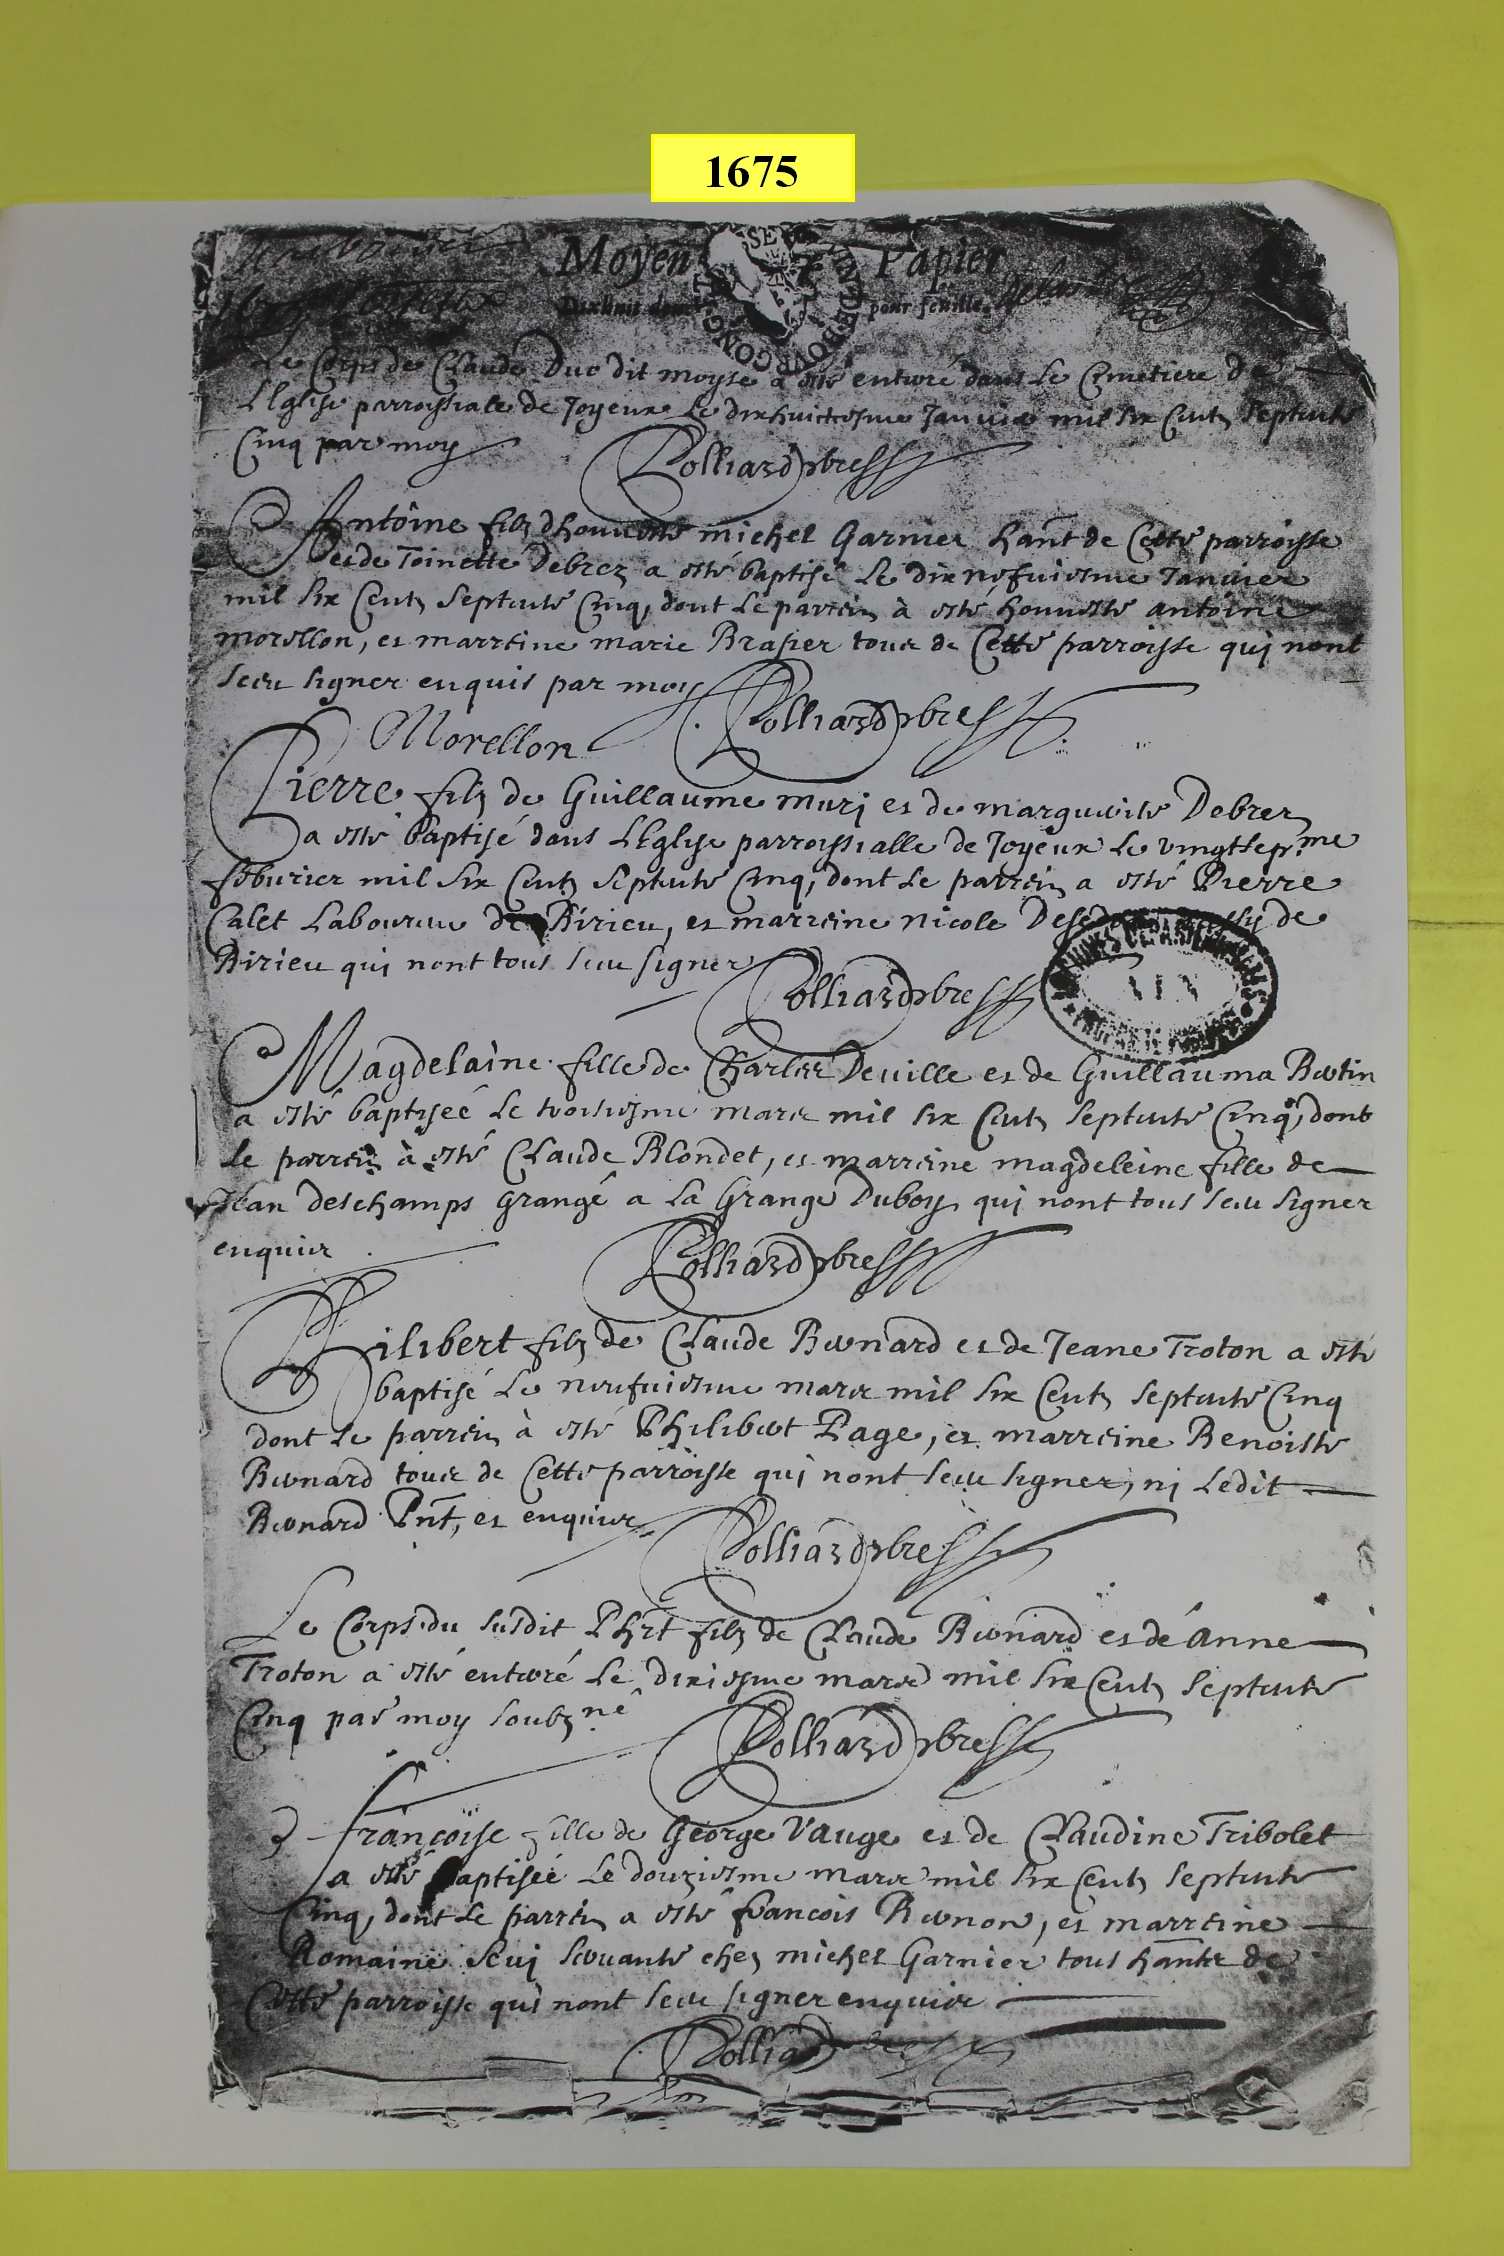 1675
Moyen Papier
Dixhuit den pour feuille
Le Corps de Claude Duc dit moyse a esté enterré dans Le Cimetiere de
LEglise parroissiale de Joyeux Le dixhuictiesme Januier mil six Cents septente
Cinq par moy
Polliard pbre
Antoine fils dhonneste michel Garnier hant de Cette parroisse
et de Toinette Debrez a esté baptisé Le dix nefuiesme Januier
mil six Cents septente Cinq, dont Le parrein à esté honneste antoine
morellon, et marreine marie Brasier tous de Cette parroisse qui nont
sceu signer enquis par moy
Polliard pbre
Morellon
Pierre fils de Guillaume muri et de marguerite Debrez
a esté baptisé dans LEglise parroissialle de Joyeux Le vingtsepme
feburier mil six Cents septente Cinq, dont Le parrein a esté Pierre
Calet Laboureur de Birieu, et marreine nicole de
Birieu qui nont tous sceu signer
Polliard pbre
Magdelaine fille de Charles Deuille et de Guillauma Bertin
a esté baptiseé Le troisiesme mars mil six Cents septente Cinq, dont
Le parrein à esté Claude Blondet, et marreine magdeleine fille de
Jean deschamps grangé a La Grange Duboys qui nont tous sceu signer
enquis
Polliard pbre
Philibert fils de Claude Bernard et de Jeane Troton a esté
baptisé Le neufuiesme mars mil six Cents septente Cinq
dont Le parrein à esté Philibert Page, et marreine Benoiste
Bernard tous de Cette parroisse qui nont sceu signer, ni Ledit
Bernard Pnt, et enquis
Polliard pbre
Le Corps du susdit Phrt fils de Claude Bernard et de Anne
Troton a esté enterré Le dixiesme mars mil six Cents septente
Cinq par moy soubsné
Polliard pbre
françoise fille de George Vauge et de Claudine Tribolet
a esté baptiseé Le douziesme mars mil six Cents septente
Cinq, dont Le parrein a esté francois Bernon, et marreine
Romaine seruante chez michel Garnier tous hants de
Cette parroisse qui nont sceu signer enquis
Polliard pbre